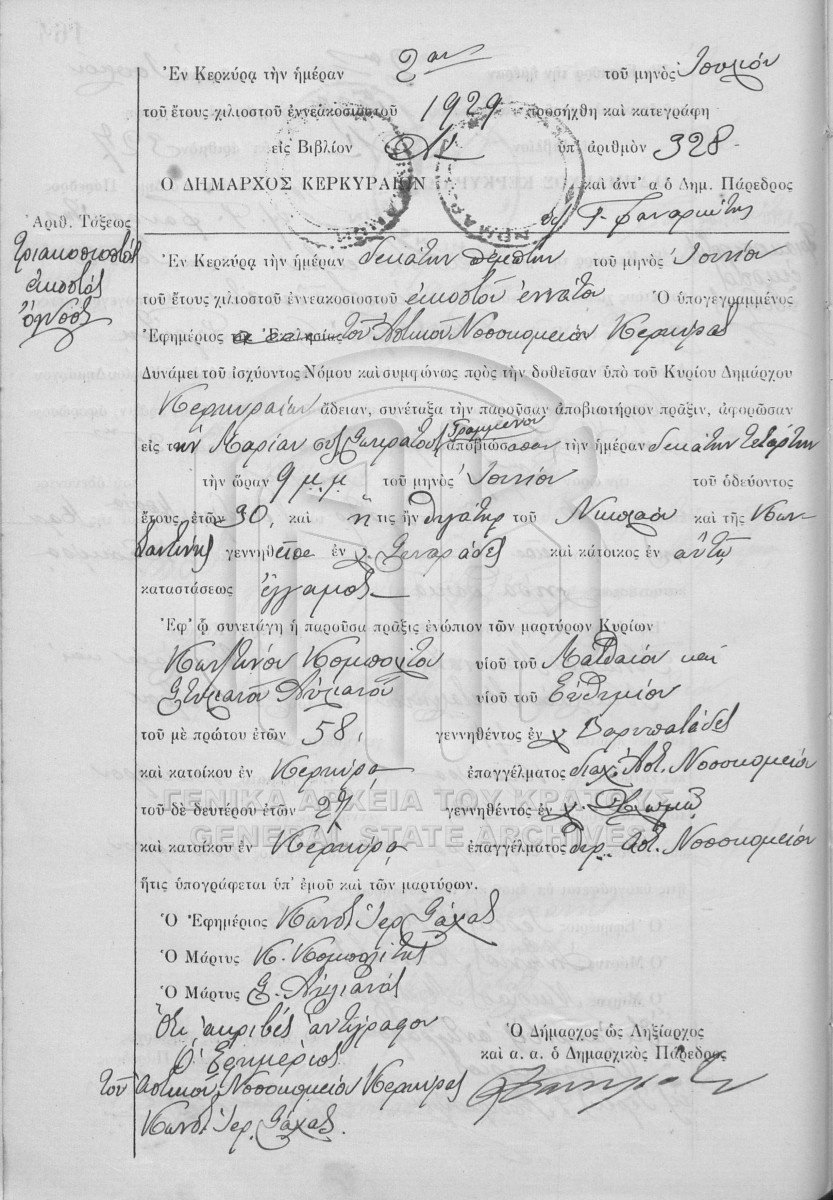 Ἐν Κερκύρᾳ τὴν ἡμέραν 2αν τοῦ μηνὸς Ἰουλίου
τοῦ ἔτους χιλιοστοῦ ἐννεακοσιοστοῦ 1929 προσήχθη καὶ κατεγράφη
εἰς Βιβλίον ὑπ' ἀριθμὸν 328
Ο ΔΗΜΑΡΧΟΣ ΚΕΡΚΥΡΑΙΩΝ καὶ ἀντ' α ὁ Δημ. Πάρεδρος
Γ. Φαναριώτης
Ἀριθ. Τάξεως
τριακοσιοστός
εἰκοστός
ὄγδοος
Ἐν Κερκύρᾳ τὴν ἡμέραν δεκάτην πέμπτην τοῦ μηνὸς Ἰουνίου
τοῦ ἔτους χιλιοστοῦ ἐννεακοσιοστοῦ εἰκοστοῦ ἐννάτου Ὁ ὑπογεγραμμένος
Ἐφημέριος τῆς Ἐκκλησίας τοῦ Ἀστικοῦ Νοσοκομείου Κερκύρας
Δυνάμει τοῦ ἰσχύοντος Νόμου καὶ συμφώνως πρὸς τὴν δοθεῖσαν ὑπὸ τοῦ Κυρίου Δημάρχου
Κερκυραίων ἄδειαν, συνέταξα τὴν παροῦσαν ἀποβιωτήριον πρᾶξιν, ἀφορῶσαν
εἰς τὴν Μαρίαν συζ Σωκράτους Γραμμένου ἀποβιώσασαν τὴν ἡμέραν δεκάτην τετάρτην
τὴν ὥραν 9 μ.μ τοῦ μηνὸς Ἰουνίου τοῦ ὁδεύοντος
ἔτους, ἐτῶν 30, καὶ ἥτις ἦν θυγάτηρ τοῦ Νικολάου καὶ τῆς Κων
σταντίνης γεννηθεῖσα ἐν χ. Σιναράδες καὶ κάτοικος ἐν αὐτῷ
καταστάσεως ἔγγαμος
Ἐφ' ᾧ συνετάγη ἡ παροῦσα πρᾶξις ἐνώπιον τῶν μαρτύρων Κυρίων
Κων/τίνου Κομπολίτου υἱοῦ τοῦ Ματθαίου καὶ
Στυλιανοῦ Αὐλιανοῦ υἱοῦ τοῦ Εὐθυμίου
τοῦ μὲ πρώτου ἐτῶν 58, γεννηθέντος ἐν χ Βαρυπατάδες
καὶ κατοίκου ἐν Κερκύρᾳ ἐπαγγέλματος διαχ. Ἀστ. Νοσοκομείου
τοῦ δὲ δευτέρου ἐτῶν 27 γεννηθέντος ἐν χ.
καὶ κατοίκου ἐν Κερκύρᾳ ἐπαγγέλματος Ἀστ. Νοσοκομείου
ἥτις ὑπογράφεται ὑπ' ἐμοῦ καὶ τῶν μαρτύρων.
Ὁ Ἐφημέριος Κωνστ Ἱερ. Σάχας
Ὁ Μάρτυς Κ. Κομπολίτης
Ὁ Μάρτυς Σ. Αὐλιανός
Ὅτι ἀκριβὲς ἀντίγραφον
Ὁ Ἐφημέριος
τοῦ Ἀστικοῦ Νοσοκομείου Κερκύρας
Κωνστ Ἱερ. Σάχας.
Ὁ Δήμαρχος ὡς Ληξίαρχος
καὶ α. α. ὁ Δημαρχικὸς Πάρεδρος
ΓΕΝΙΚΑ ΑΡΧΕΙΑ ΤΟΥ ΚΡΑΤΟΥΣ
GENERAL STATE ARCHIVES